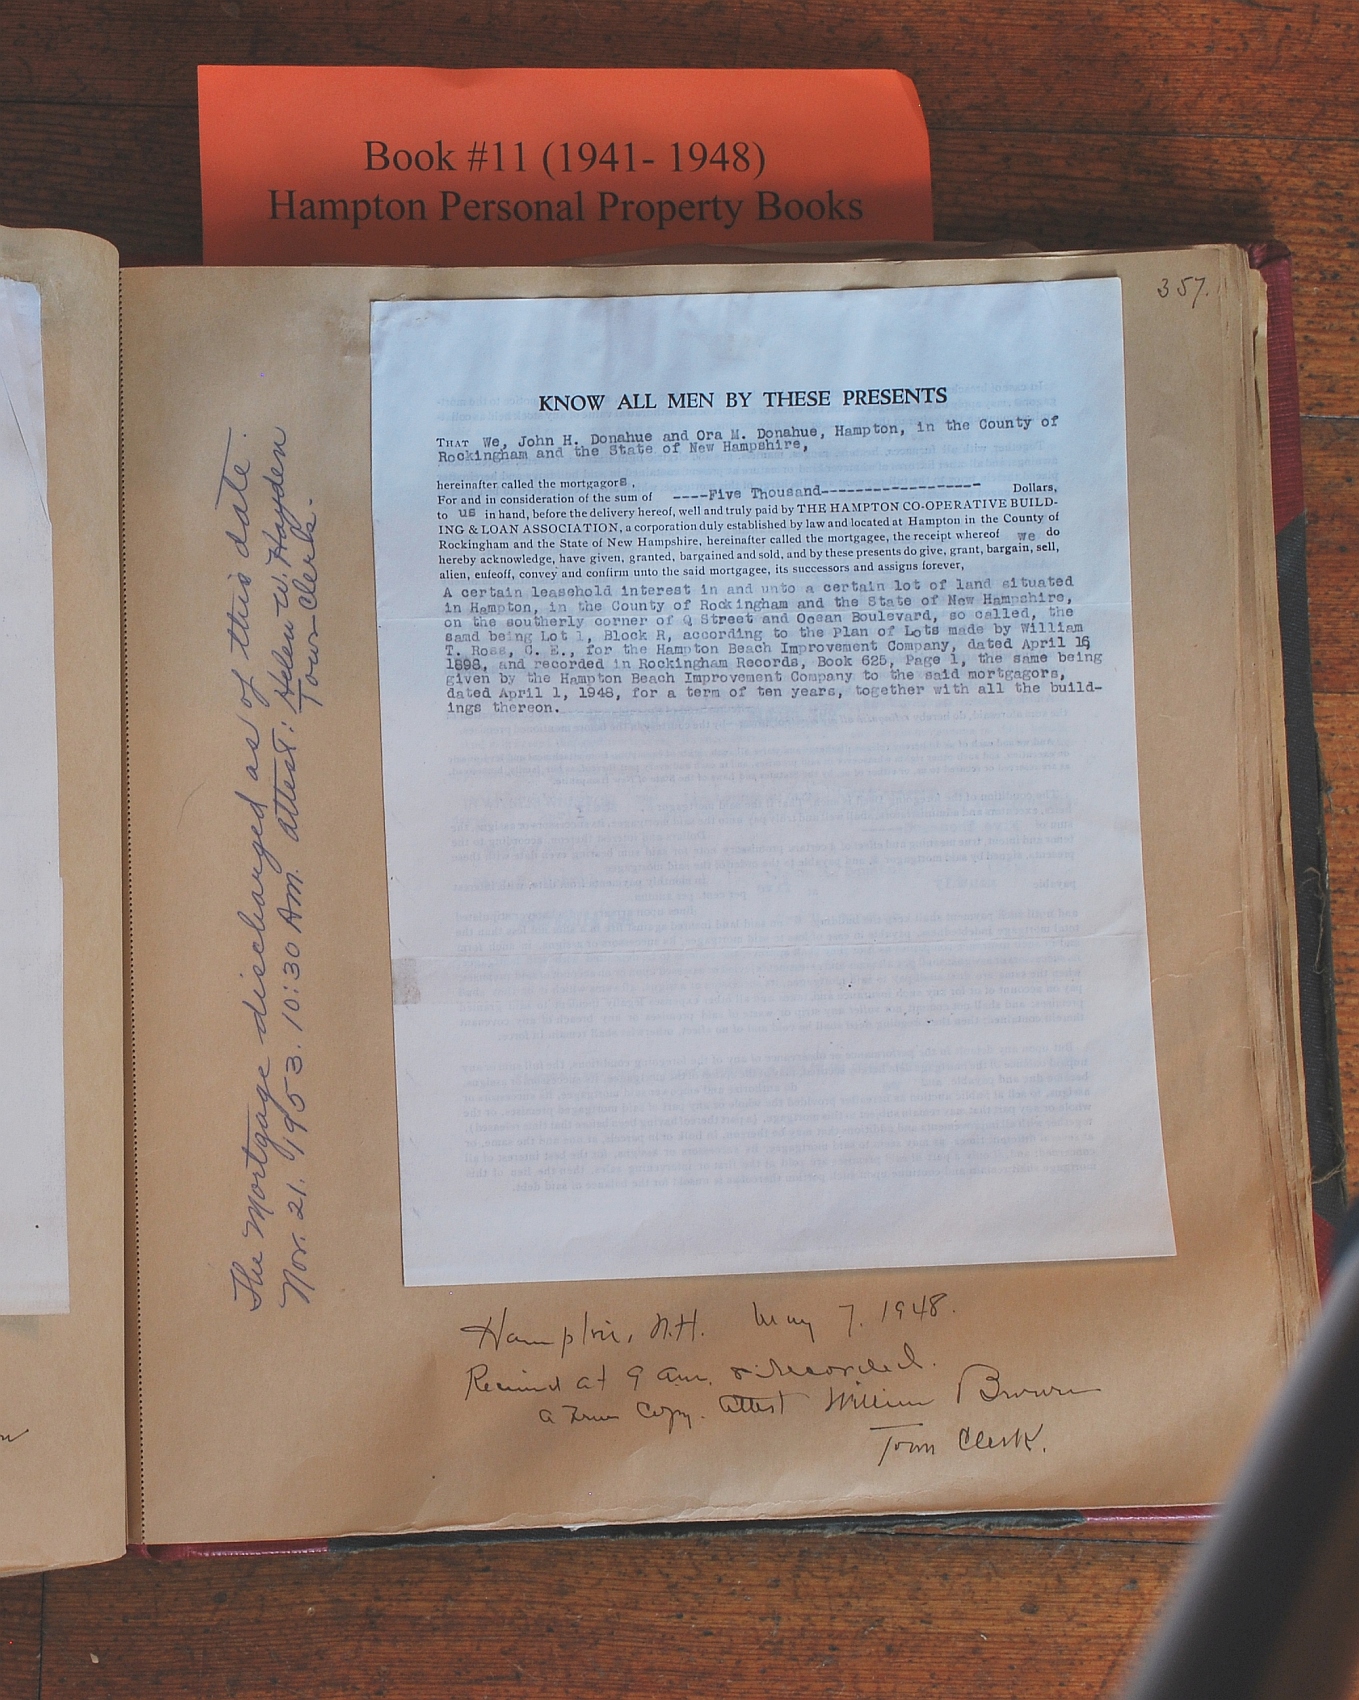 Book #11 (1941- 1948)
Hampton Personal Property Books
357.
KNOW ALL MEN BY THESE PRESENTS
THAT We, John H. Donahue and Ora M. Donahue, Hampton, in the County of
Rockingham and the State of New Hampshire,
hereinafter called the mortgagors ,
For and in consideration of the sum of ----Five Thousand----------------- Dollars,
to us in hand, before the delivery hereof, well and truly paid by THE HAMPTON CO-OPERATIVE BUILD-
ING & LOAN ASSOCIATION, a corporation duly established by law and located at Hampton in the County of
Rockingham and the State of New Hampshire, hereinafter called the mortgagee, the receipt whereof we do
hereby acknowledge, have given, granted, bargained and sold, and by these presents do give, grant, bargain, sell,
alien, enfeoff, convey and confirm unto the said mortgagee, its successors and assigns forever,
A certain leasehold interest in and unto a certain lot of land situated
in Hampton, in the County of Rockingham and the State of New Hampshire,
on the southerly corner of Q Street and Ocean Boulevard, so called, the
samd being Lot 1, Block R, according to the Plan of Lots made by William
T. Ross, C. E., for the Hampton Beach Improvement Company, dated April 16
1898, and recorded in Rockingham Records, Book 625, Page 1, the same being
given by the Hampton Beach Improvement Company to the said mortgagors,
dated April 1, 1948, for a term of ten years, together with all the build-
ings thereon.
The Mortgage discharged as of this date.
Nov. 21. 1953. 10:30 AM. attest: Helen W. Hayden
Town Clerk.
Hampton, N.H. May 7. 1948.
Received at 9 am. & recorded.
a True Copy. attest William Brown
Town Clerk.